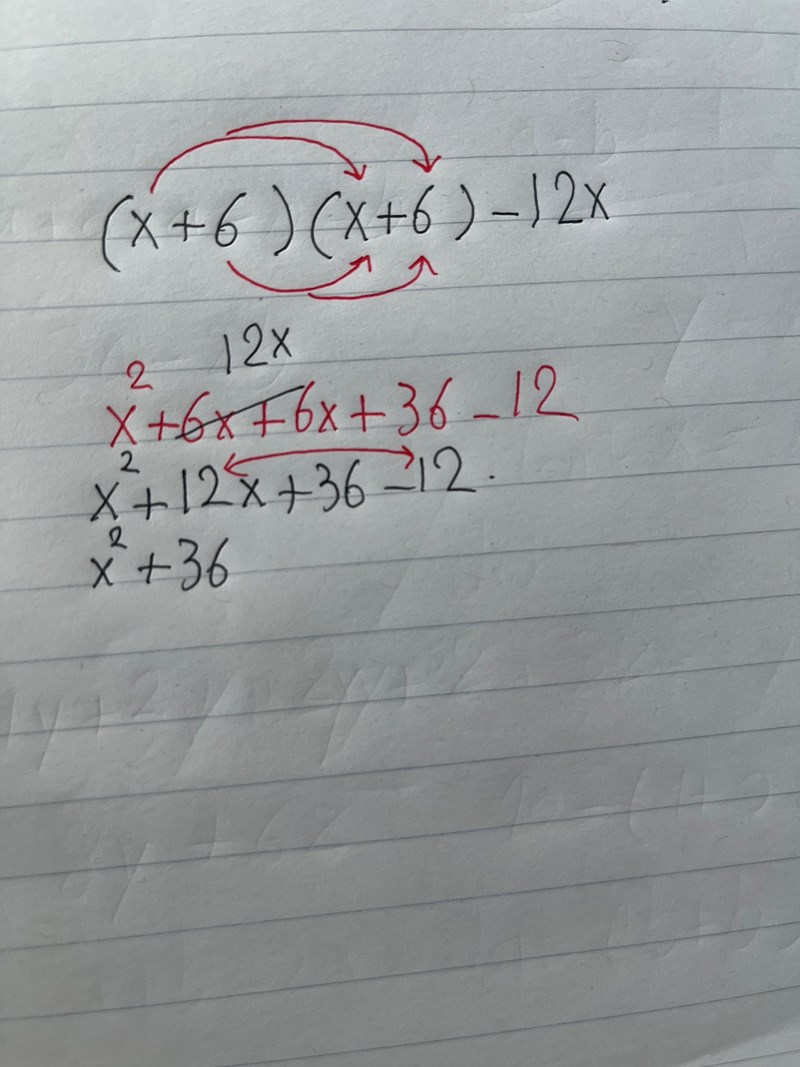 (x+6)(x+6)-12x
12x
x²+6x+6x+36-12
x²+12x+36-12.
x²+36